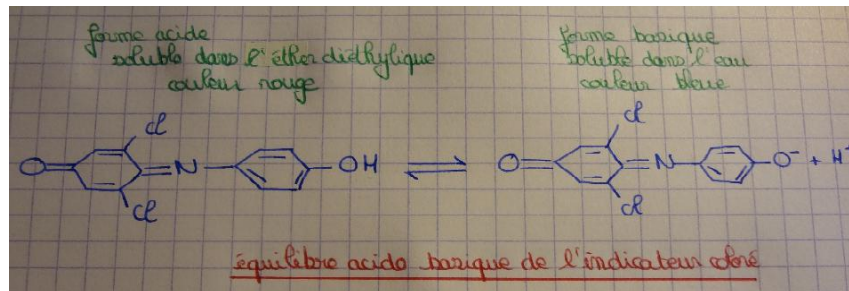 forme acide
soluble dans l'éther diéthylique
couleur rouge
forme basique
soluble dans l'eau
couleur bleue
Cl
O
N
OH
Cl
Cl
O
N
O⁻ + H⁺
Cl
équilibre acido basique de l'indicateur coloré